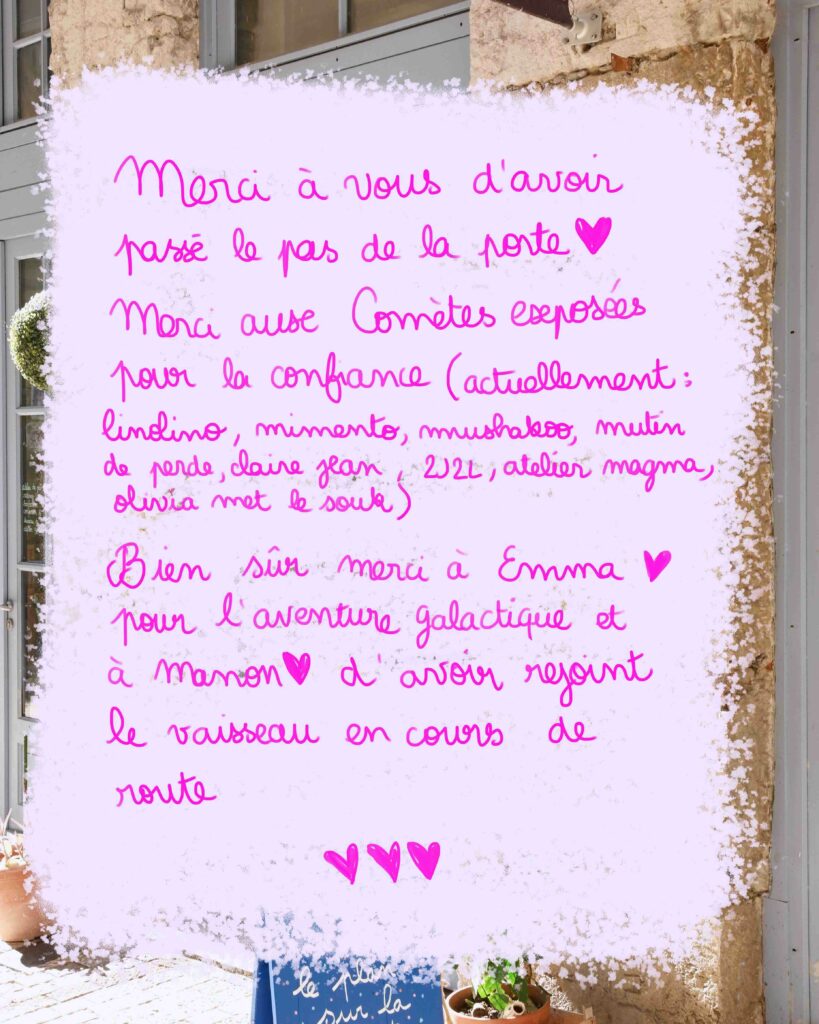 Merci à vous d'avoir
passé le pas de la porte
Merci ause Comètes exposées
pour la confiance (actuellement :
lindino, mimento, mushakoo, mutin
de perde, claire jean, 2J2L, atelier magma,
olivia met le souk)
Bien sûr merci à Emma
pour l'aventure galactique et
à Manon d'avoir rejoint
le vaisseau en cours de
route
le plan
sur la